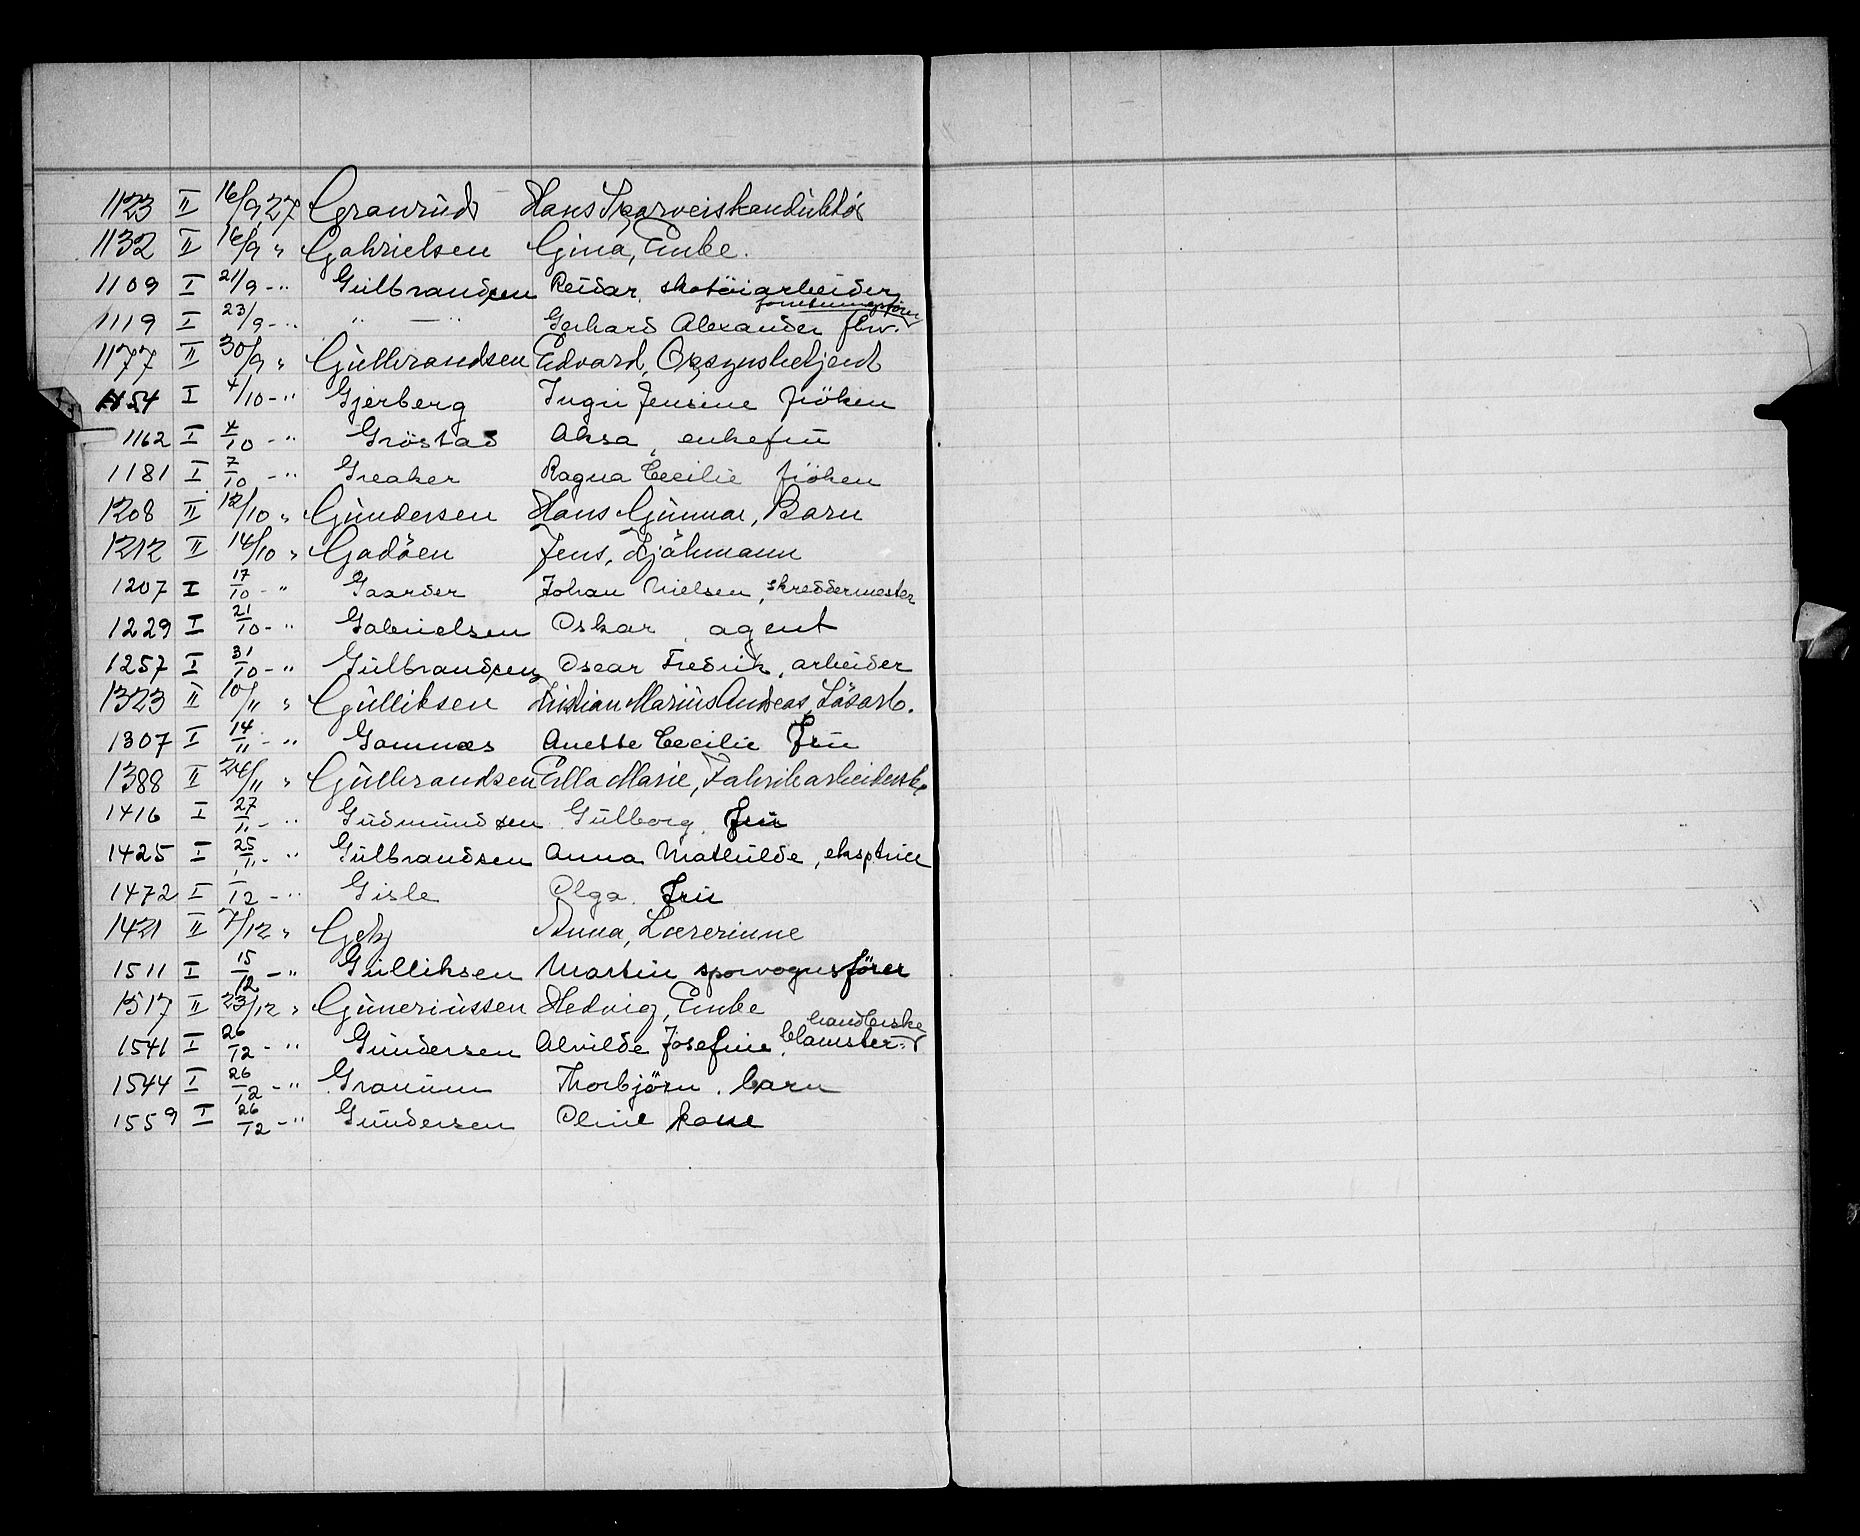 1123 II 16/9 27 Granrud Hans Sporveiskonduktör
1132 II 16/9 " Gabrielsen Gina, Enke.
1109 I 21/9 - " Gulbrandsen Reidar, skotöiarbeider
forretningsförer
1119 I 23/9 - " " — " Gerhard Alexander fhv.
1177 II 30/9 " Gulbrandsen Edvard, Opsynsbetjent
1154 I 4/10 - " Gjerberg Ingri Jensine fröken
1162 I 4/10 - " Gröstad Aksa, enkefru
1181 I 7/10 - " Greaker Ragna Cecilie fröken
1208 II 12/10 " Gundersen Hans Gunnar, Barn
1212 II 14/10 " Gadöen Jens, Sjömann
1207 I 17/10 - " Gaarder Johan Nielsen, skreddermester
1229 I 21/10 - " Gabrielsen Oskar, agent
1257 I 31/10 - " Gulbrandsen Oscar Fredrik, arbeider
1323 II 10/11 " Gulliksen Kristian Marius Andreas, Lösarb.
1307 I 14/11 - " Gamnæs Anette Cecilie Fru
1388 II 24/11 " Gulbrandsen Ella Marie, Fabrikarbeiderske
1416 I 27/11 - " Gudmundsen Gulborg, Fru
1425 I 25/11 - " Gulbrandsen Anna Mathilde, eksptrice
1472 I 1/12 - " Gisle Olga. Fru
1421 II 7/12 " Anna, Lærerinne
1511 I 15/12 - " Gulliksen Martin sporvognsförer
1517 II 23/12 " Guneriussen Hedvig, Enke
handlerske
1541 I 26/12 - " Gundersen Alvilde Josefine, blomster-
1544 I 26/12 - " Granum Thorbjörn. barn
1559 I 26/12 - " Gundersen Oline kone